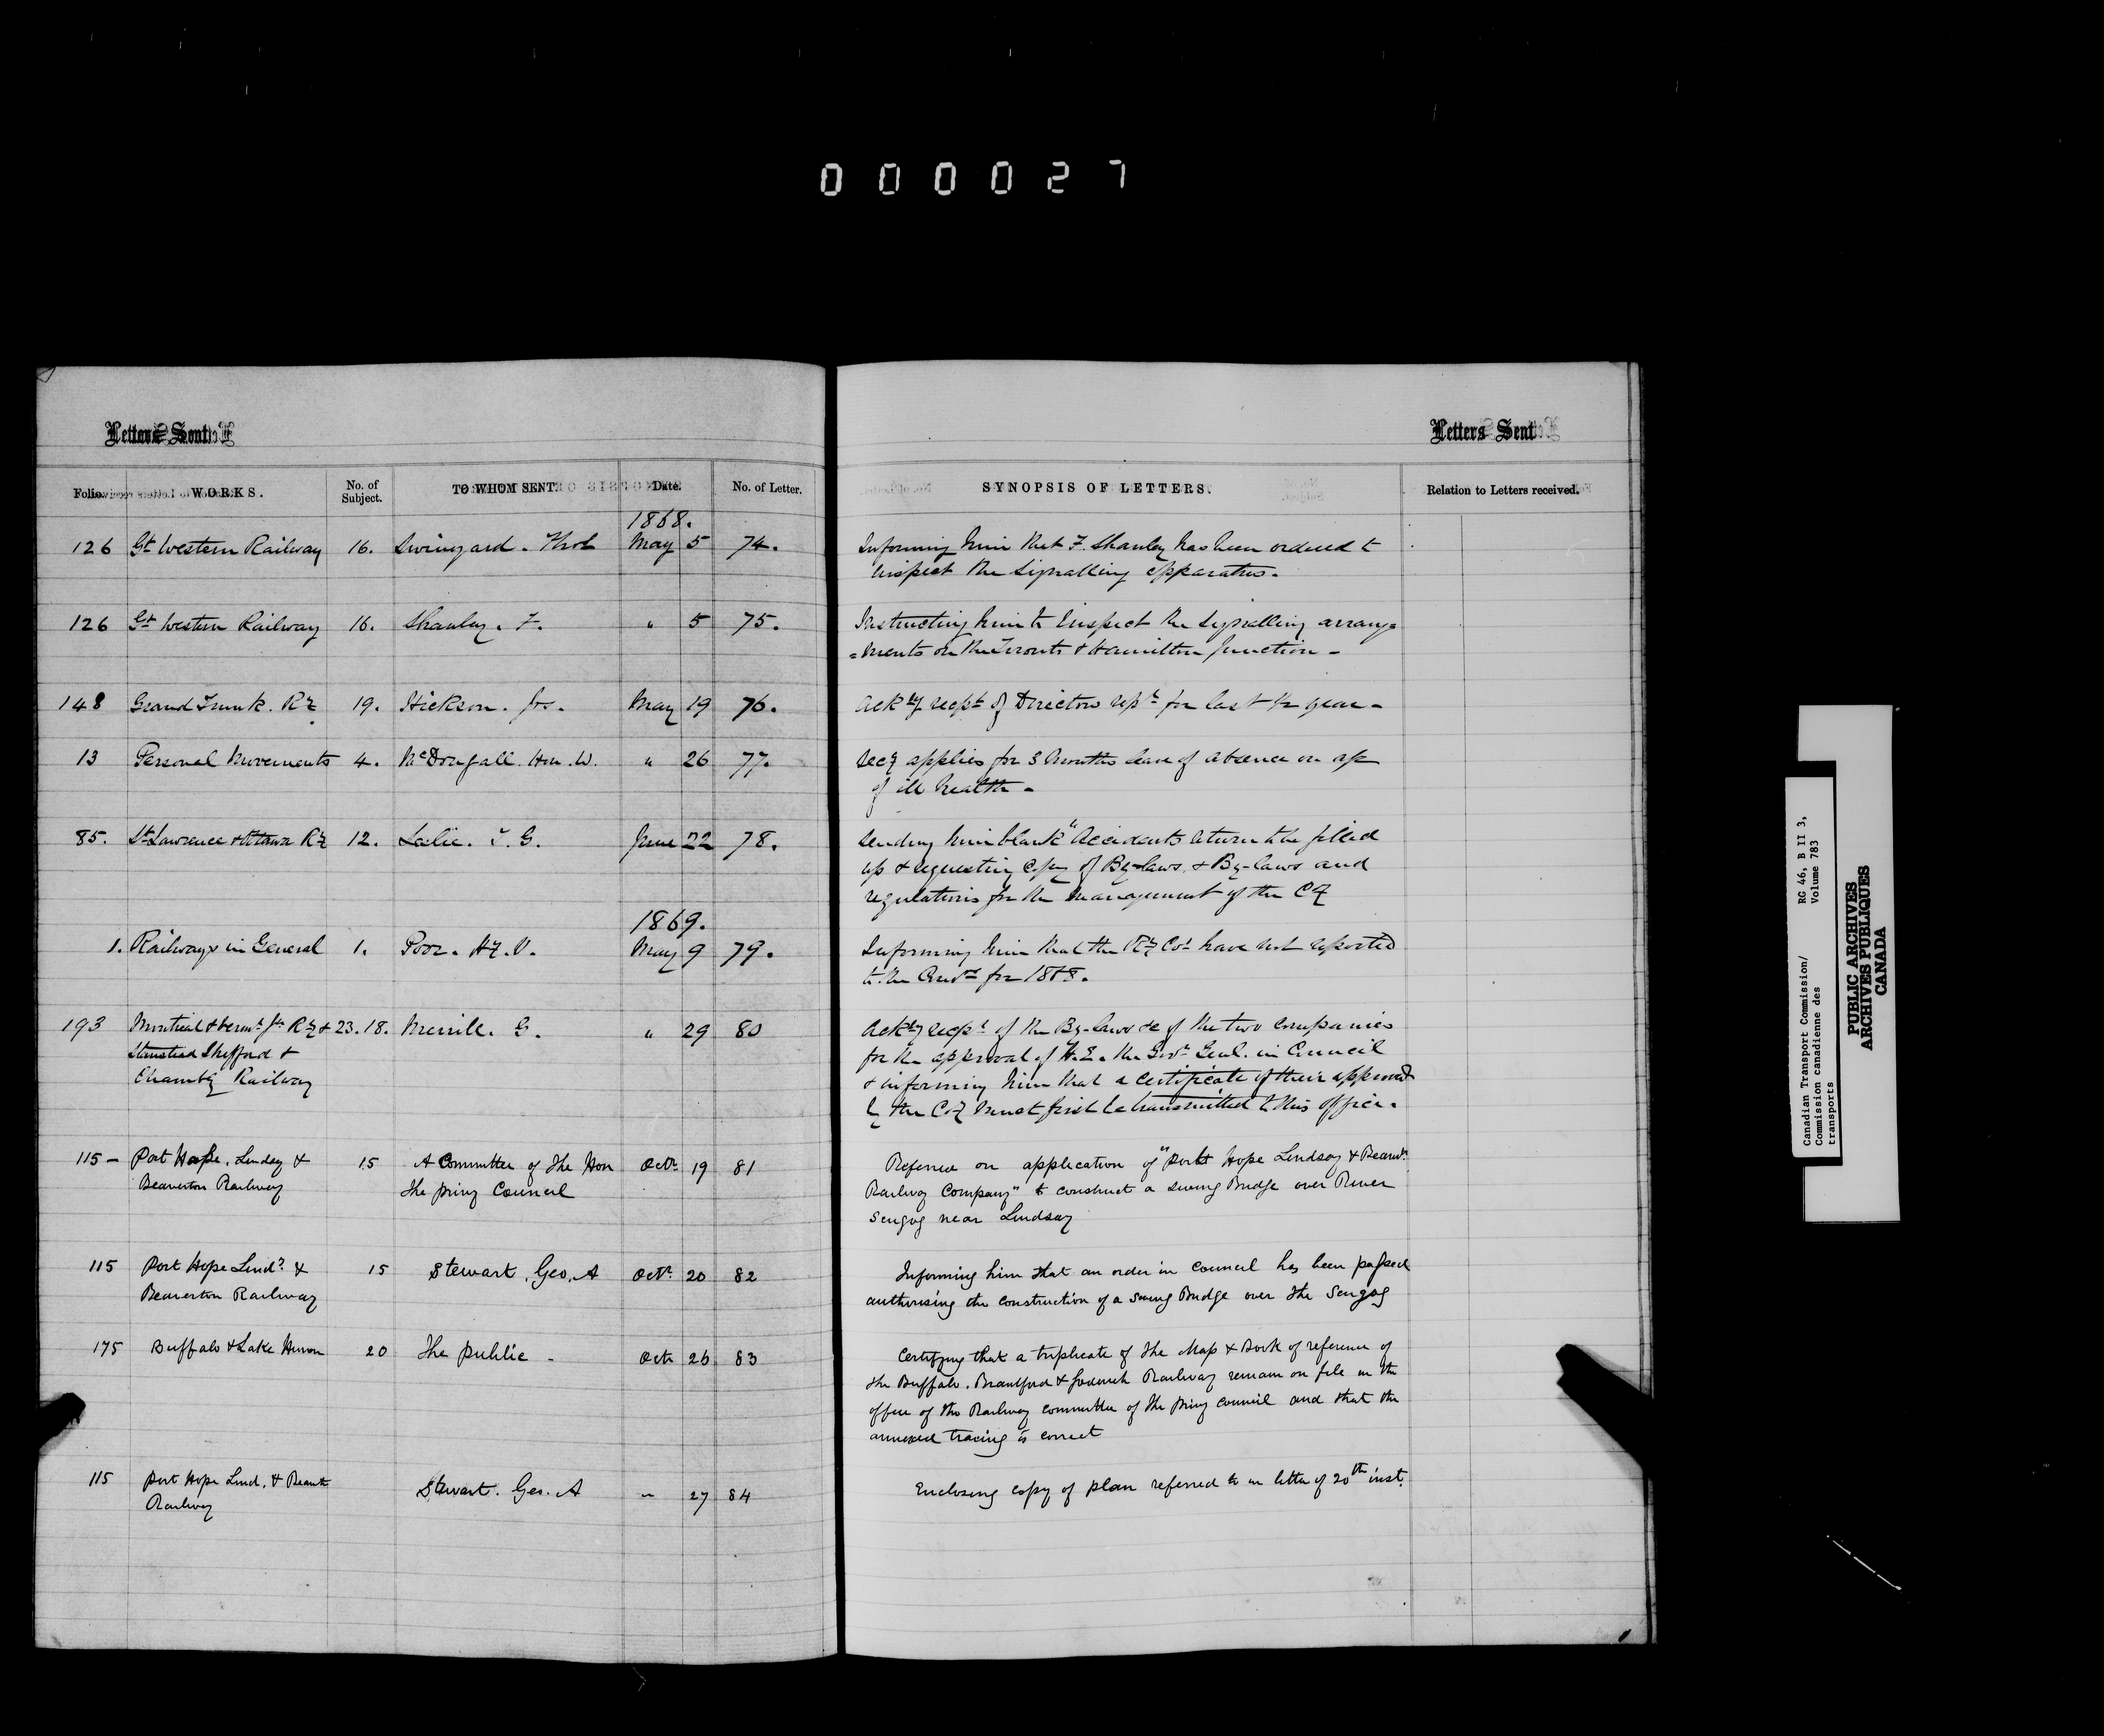 000027
Letters Sent
Letters Sent
Folio. WORKS. No. of Subject. TO WHOM SENT. Date. No. of Letter. SYNOPSIS OF LETTERS. Relation to Letters received.
1868.
126 Gt Western Railway 16. Swinyard. Thos May 5 74. Informing him that F. Shanly has been ordered to
inspect the signalling apparatus.
126 Gt Western Railway 16. Shanley. F. " 5 75. Instructing him to inspect the signalling arrange
=ments on the Toronto & Hamilton Junction -
148 Grand Trunk. Ry 19. Hickson. Jos. May 19 76. Ack'g recpt of Directors rept for last 1/2 year -
13 Personal Movements 4. McDougall. Hon. W. " 26 77. Secy applies for 3 months leave of absence on a/c
of ill health -
85. St Lawrence & Ottawa Ry 12. Leslie. J. G. June 22 78. Sending him blank "Accidents return to be filled
up & requesting copy of By-laws. & By-laws and
regulations for the management of the Coy
1869.
1. Railways in General 1. Poor. Hy. V. May 9 79. Informing him that the Ry Cos have not reported
to the Govt for 1868.
193 Montreal & Vermt Jn Ry & 23. 18. Merrill. G. " 29 80 Ack'g recpt of the By-laws &c of the two Companies
Stanstead Shefford & for the approval of H. E. the Govr Genl. in Council
Chambly Railway & informing him that a certificate of their approval
by the Coy must first be transmitted to this office.
115 - Port Hope, Lindsay & 15 A Committee of the Hon Octr 19 81 Referred on application of "Port Hope Lindsay & Beavn
Beaverton Railway the privy Council Railway Company" to construct a swing Bridge over River
Scugog near Lindsay
115 Port Hope Lind? & 15 Stewart, Geo. A Octr 20 82 Informing him that an order in Council has been passed
Beaverton Railway authorising the construction of a swing Bridge over the Scugog
175 Buffalo & Lake Huron 20 The public - Octr 26 83 Certifying that a triplicate of the Map & Book of reference of
the Buffalo. Brantford & Goderich Railway remain on file in the
office of the Railway committee of the privy council and that the
annexed tracing is correct
115 Port Hope Lind. & Beavt Stewart. Geo. A " 27 84 Enclosing copy of plan referred to in letter of 20th inst.
Railway
Canadian Transport Commission/ RG 46, B II 3,
Commission canadienne des Volume 783
transports
PUBLIC ARCHIVES
ARCHIVES PUBLIQUES
CANADA